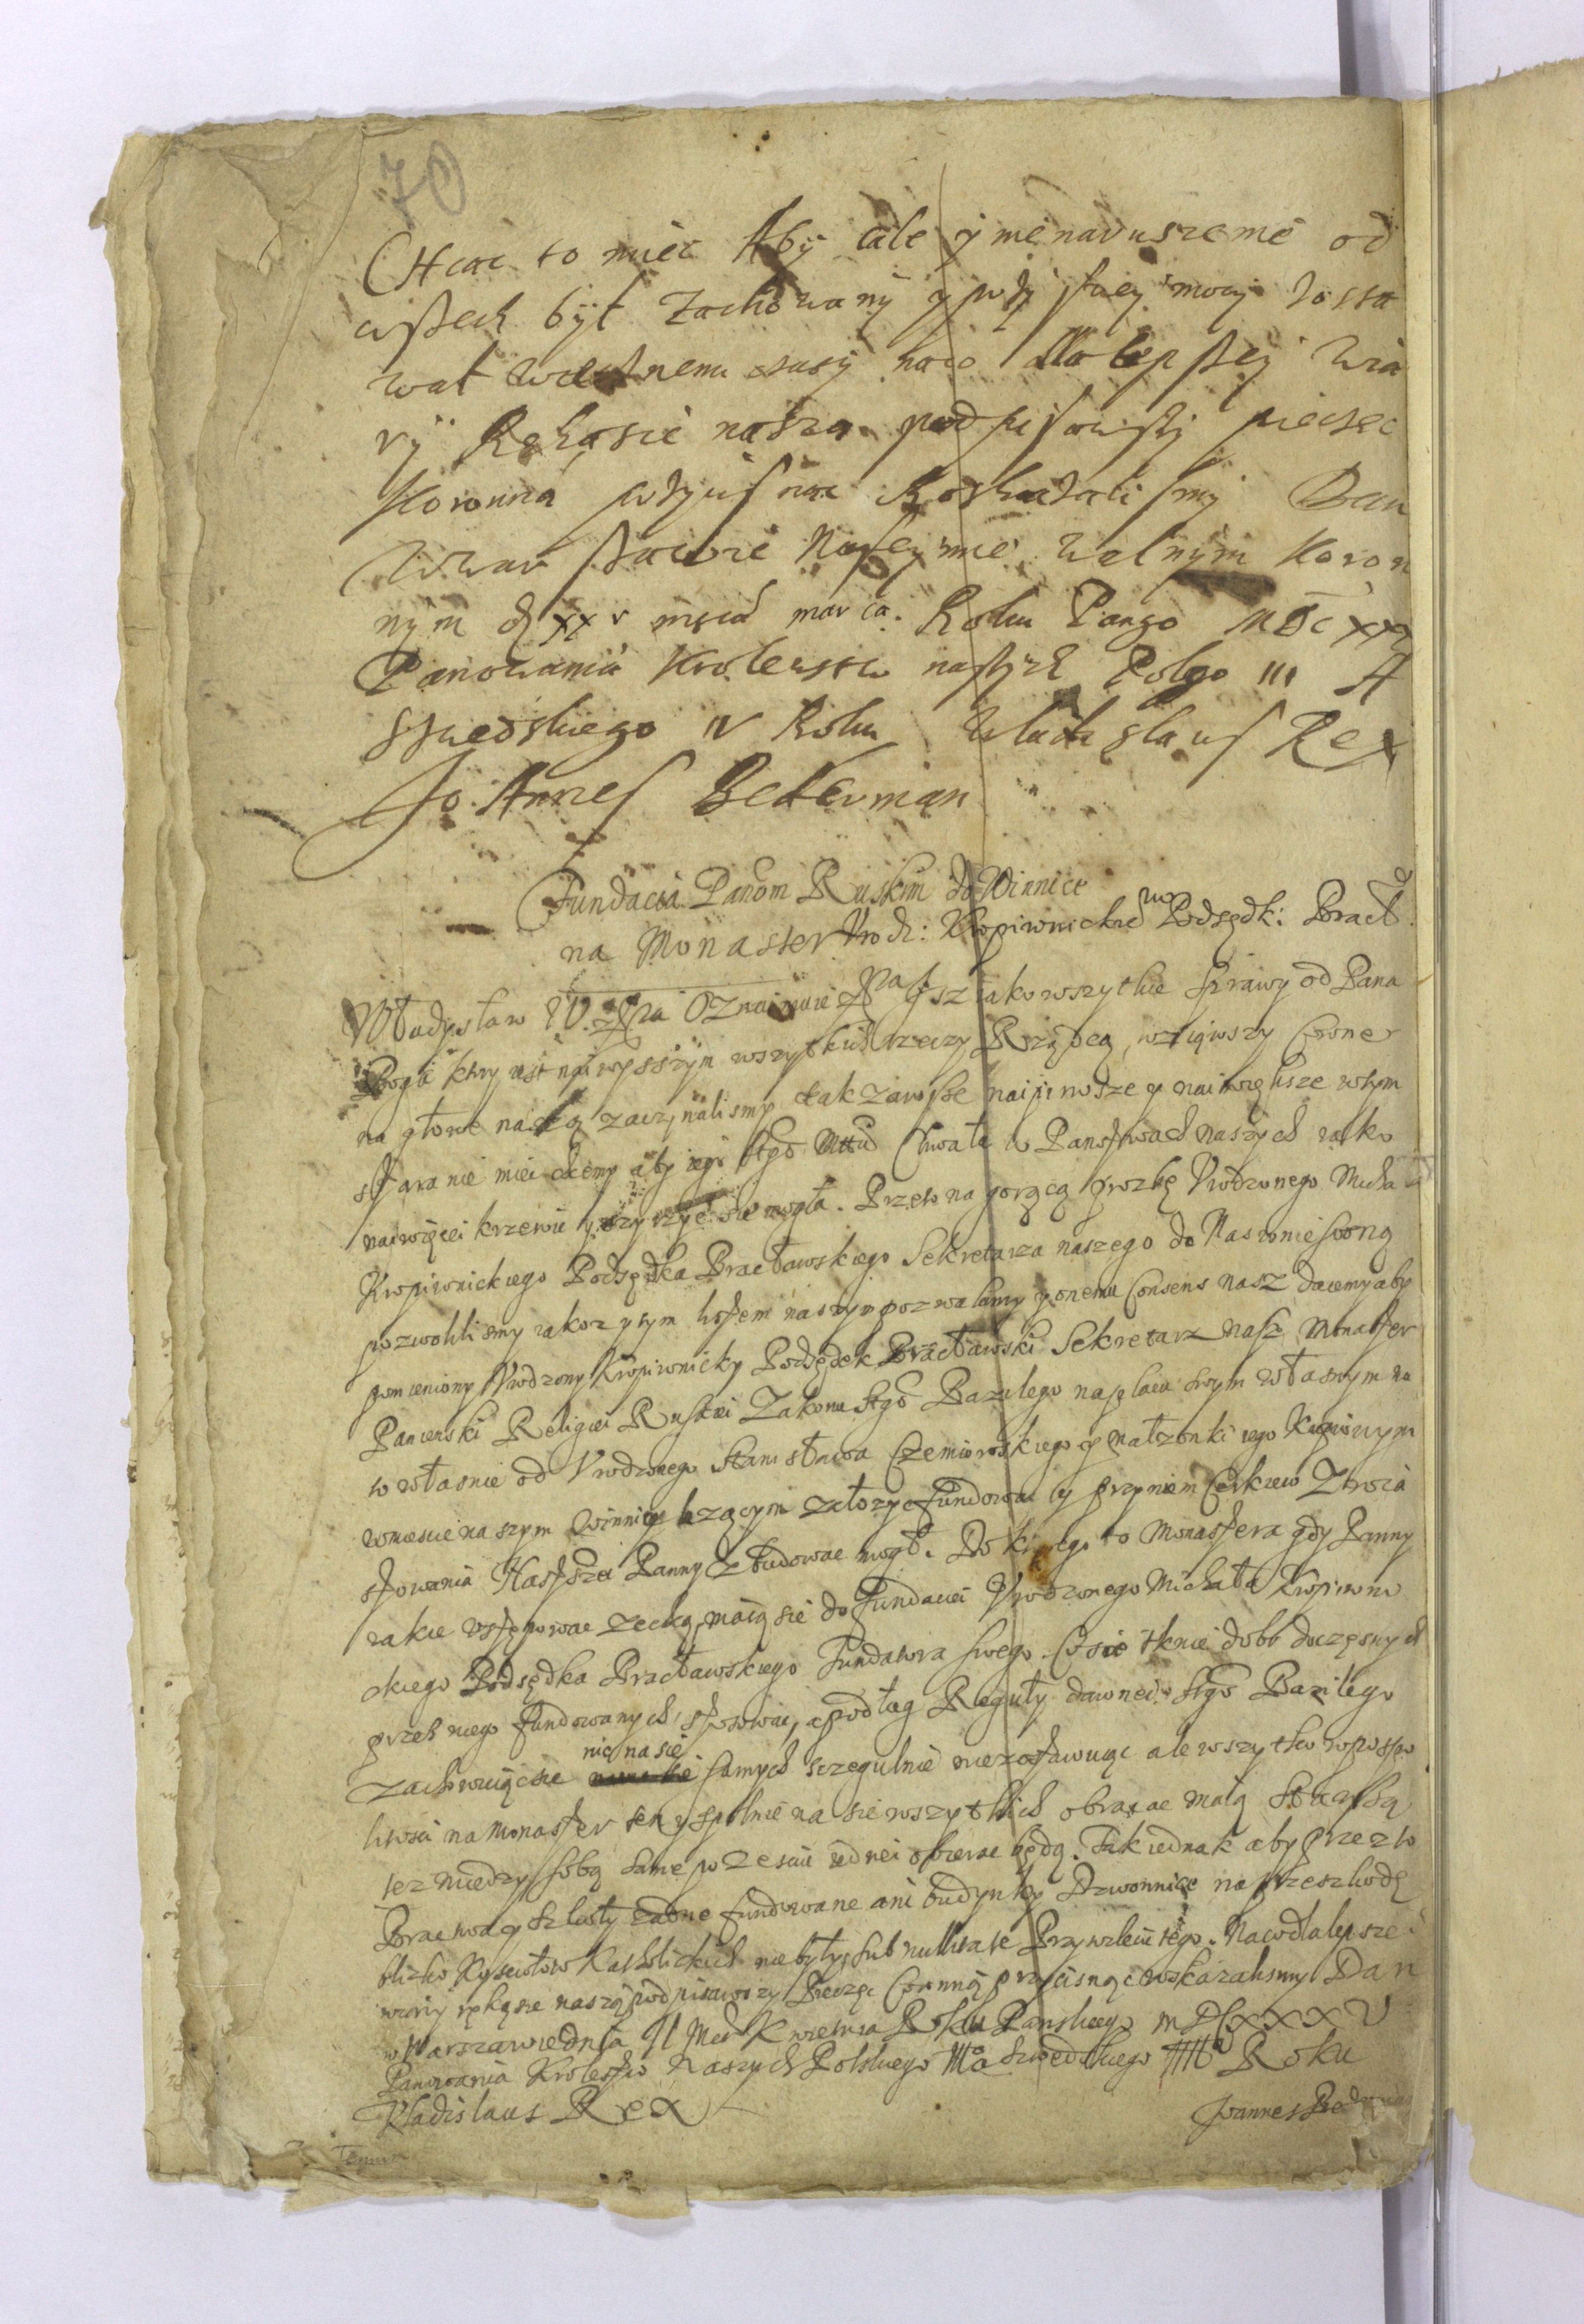 70
Chcąc to miec Abÿ cale ÿ menaruszeme od
wszech bÿł zachowanÿ y przÿ swej mocy zosta
wał wiecznemi czasÿ na co dla lepszej wia
rÿ Rękąsie naszą podpisawszÿ pieczęc
Koronną przycisnąc Roskazalismÿ Dan
W Warszawie na seymie walnym Koron
nym d xxv msca marca. Roku Pango MDCxxx
Panowania Krolewstw naszych Polgo III A
Szwedskiego IV Roku Uladislaus Rex
Joannes Bederman
Fundacia Panom Ruskim do Winnice
na Monaster Urodz: Kropiwnickiego Podsędk: Bracł
Władysław IV Oznaimuie isz iako wszytkie Sprawy od Pana
Boga ktory iest naiwysszym wszytkich rzeczy Rządcą, wziąwszy Corone
na głowe naszą zaczynalismy tak zawsze naipirwsze y naiwiększe w tym
staranie miec chcemy aby iego Chwała w Panstwach naszych iako
naiwięcei krzewic y szyrzyc sie mogła. Przeto na gorącą prozbę Urodzonego Micha
Kropiwnickiego Podsędka Bracławskiego Sekretarza naszego do Nas wniesioną
pozwolilismy iakoz y tym listem naszym pozwalamy y onemu Consens nasz daiemy aby
pomieniony Urodzony Kropiwnicky Podsędek Bracławski Sekretarz nasz Monaster
Panienski Religiei Ruskiei Zakonu Stgo Bazilego na placu swym własnym na
własnie od Urodzonego Stanisława Czemierskiego y małzonki iego Kupionym
w miescie naszym Winnicy lezącym załozyc fundowac y przy niem Cerkiew Zwia
stowania Nasszei Panny zbudowac mogł. Do ktorego to Monastera gdy Panny
iakie wstępowac zechcą, maią sie do fundaciei Urodzonego Michała Kropiwni
ckiego Podsędka Bracławskiego Fundatora swego. Co sie tknie dobr doczęsnych
przez niego fundowanych, stosowac, a podług Reguły dawnei Stgo Bazilego
zachowuiąc sie nic na się samych szczegulnie nie zostawuiąc ale wszytko w pospo
litosci na monaster ten y spolnie na sie wszytkich obracac maią Starszą
tez miedzy sobą same przescie iednei obierac będą. Tak iednak aby przez to
Bractwa y Szkoły zadne fundowane ani budynky Dzwonnice na przeszkodę
blizko Kysciołow Katholickich nie były, sub nullitate Przywileiu tego. Na co dla lepszei
wiary ręką sie naszą podpisawszy Pieczęc Coronną przycisnąc roskazalismy Dan
w Warszawie dnia II Kwietnia Roku Panskiego MDCXXXV
Panowania Krolestw Naszych Polskiego III a Szwedzkiego IIII Roku
Vladislaus Rex Joannes Bederman